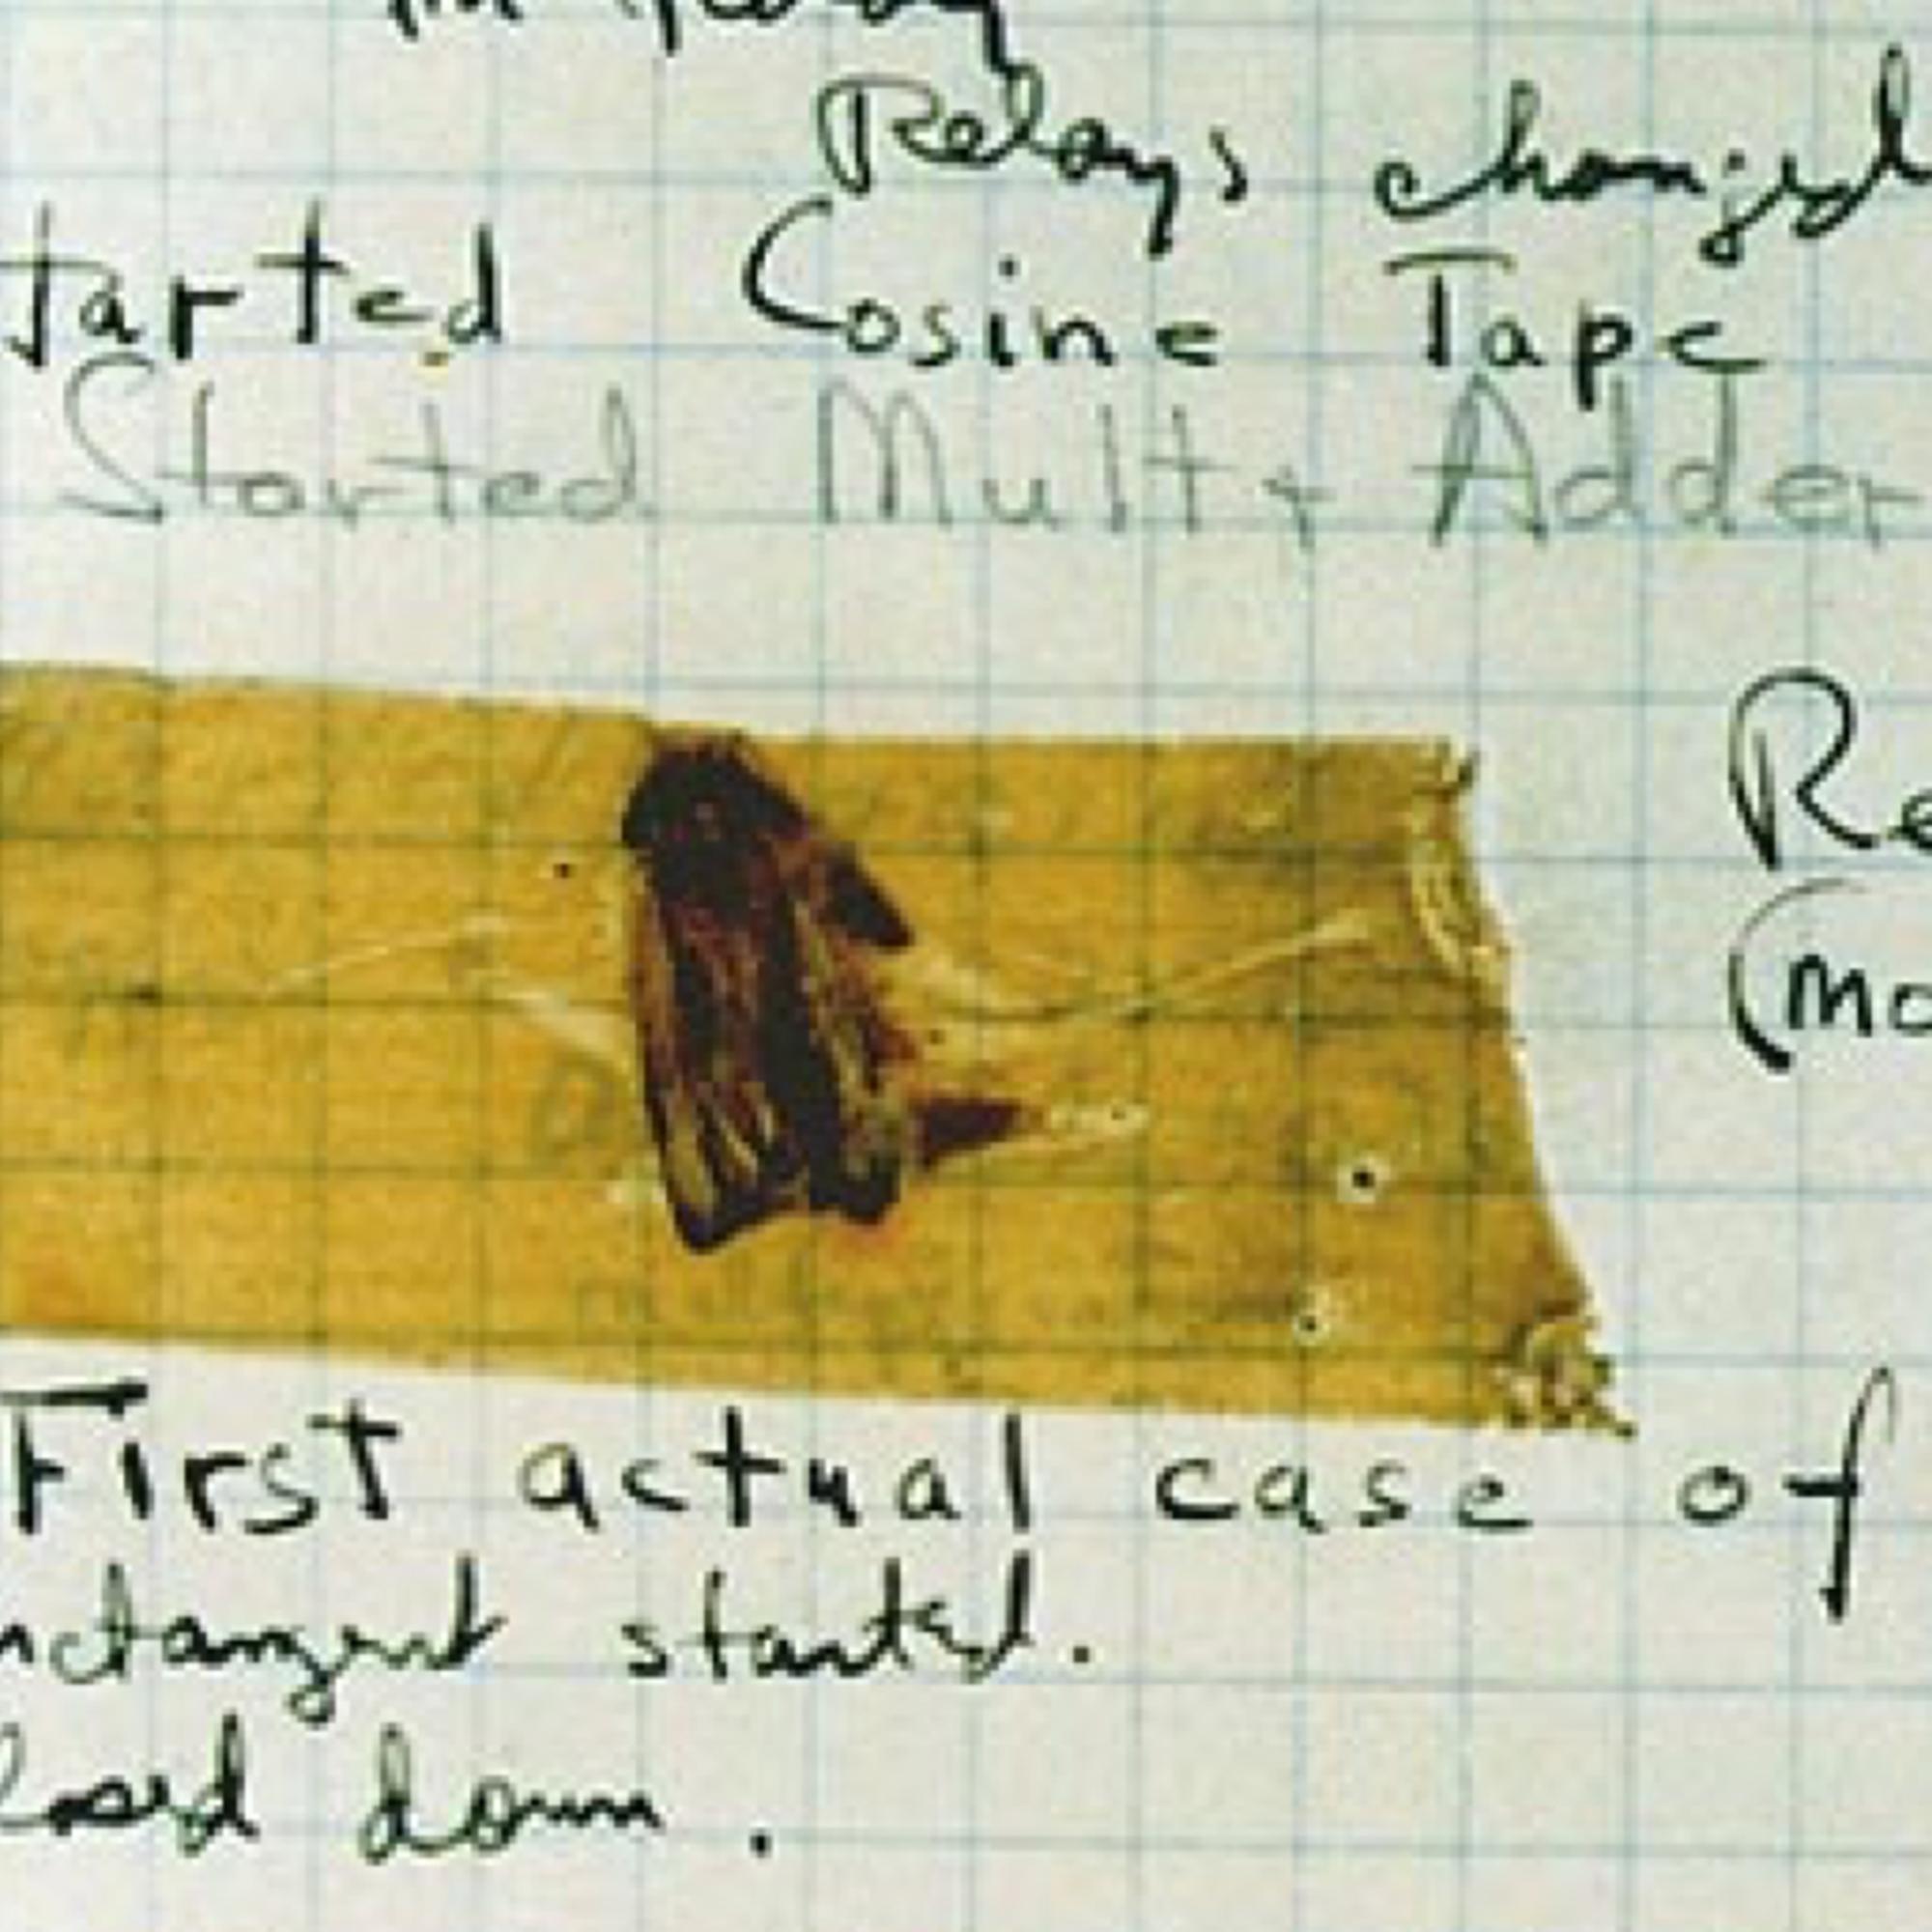 Relays changed
tarted Cosine Tape
Started Mult + Adder
Re
(mo
First actual case of
nctangent started.
losed down.